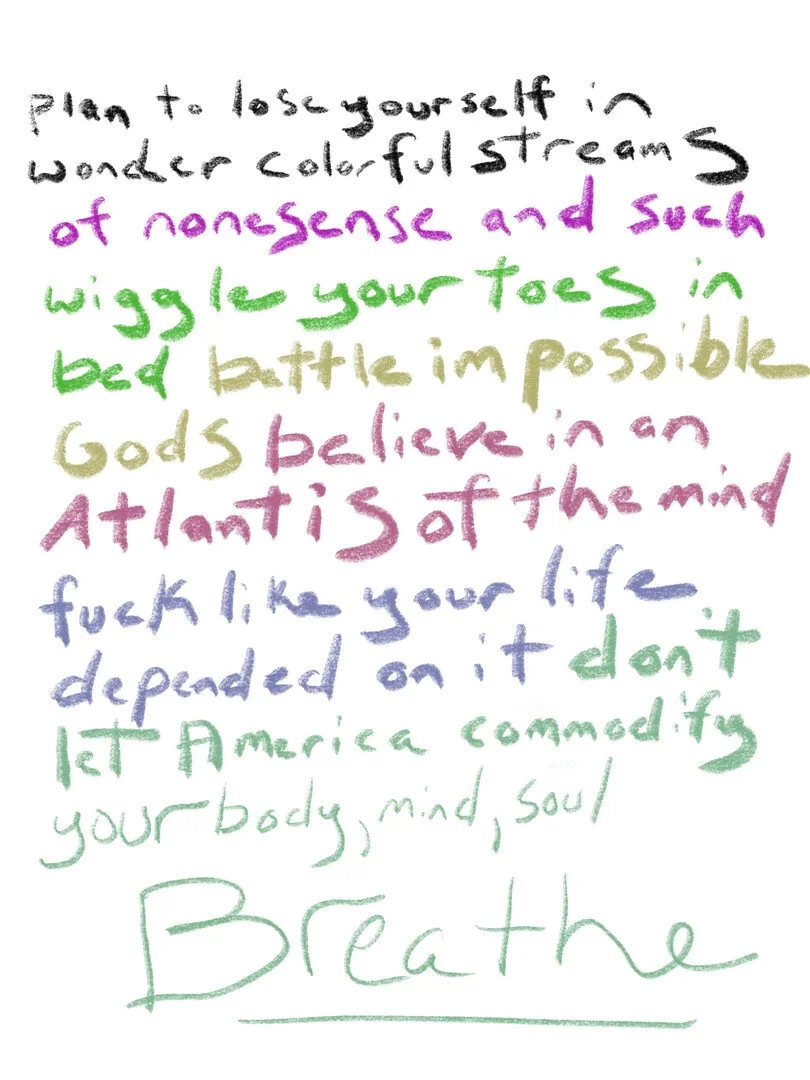 plan to lose yourself in
wonder colorful streams
of nonesense and such
wiggle your toes in
bed battle impossible
Gods believe in an
Atlantis of the mind
fuck like your life
depended on it don't
let America commodify
your body, mind, soul
Breathe